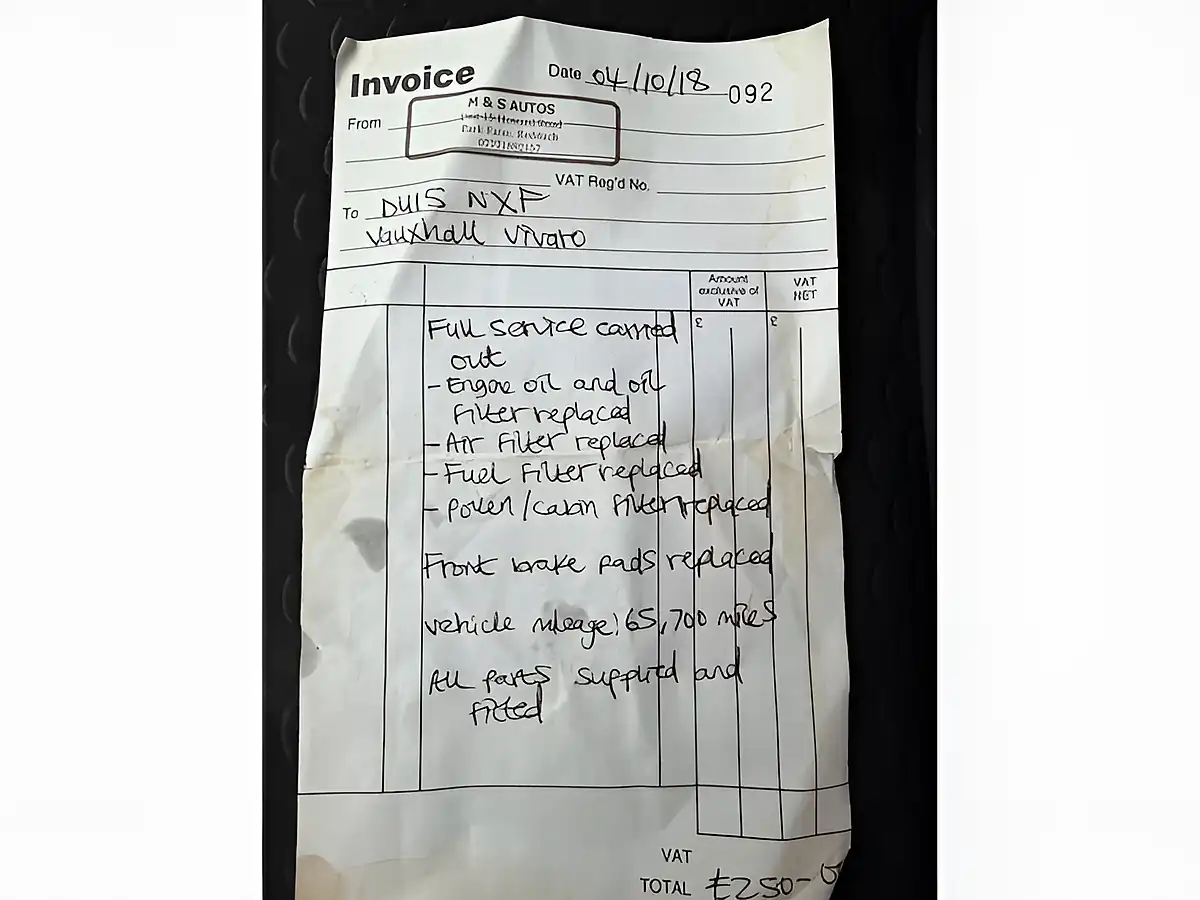 Invoice
Date 04/10/18 092
M & S AUTOS
From
Park Farm, Redditch
VAT Reg'd No.
To DU15 NXF
Vauxhall Vivaro
Amount exclusive of VAT
VAT NET
£ £
Full service carried
out
- Engine oil and oil
filter replaced
- Air filter replaced
- Fuel filter replaced
- pollen/cabin filter replaced
Front brake pads replaced
vehicle mileage: 65,700 miles
All parts supplied and
fitted
VAT
TOTAL £250-00